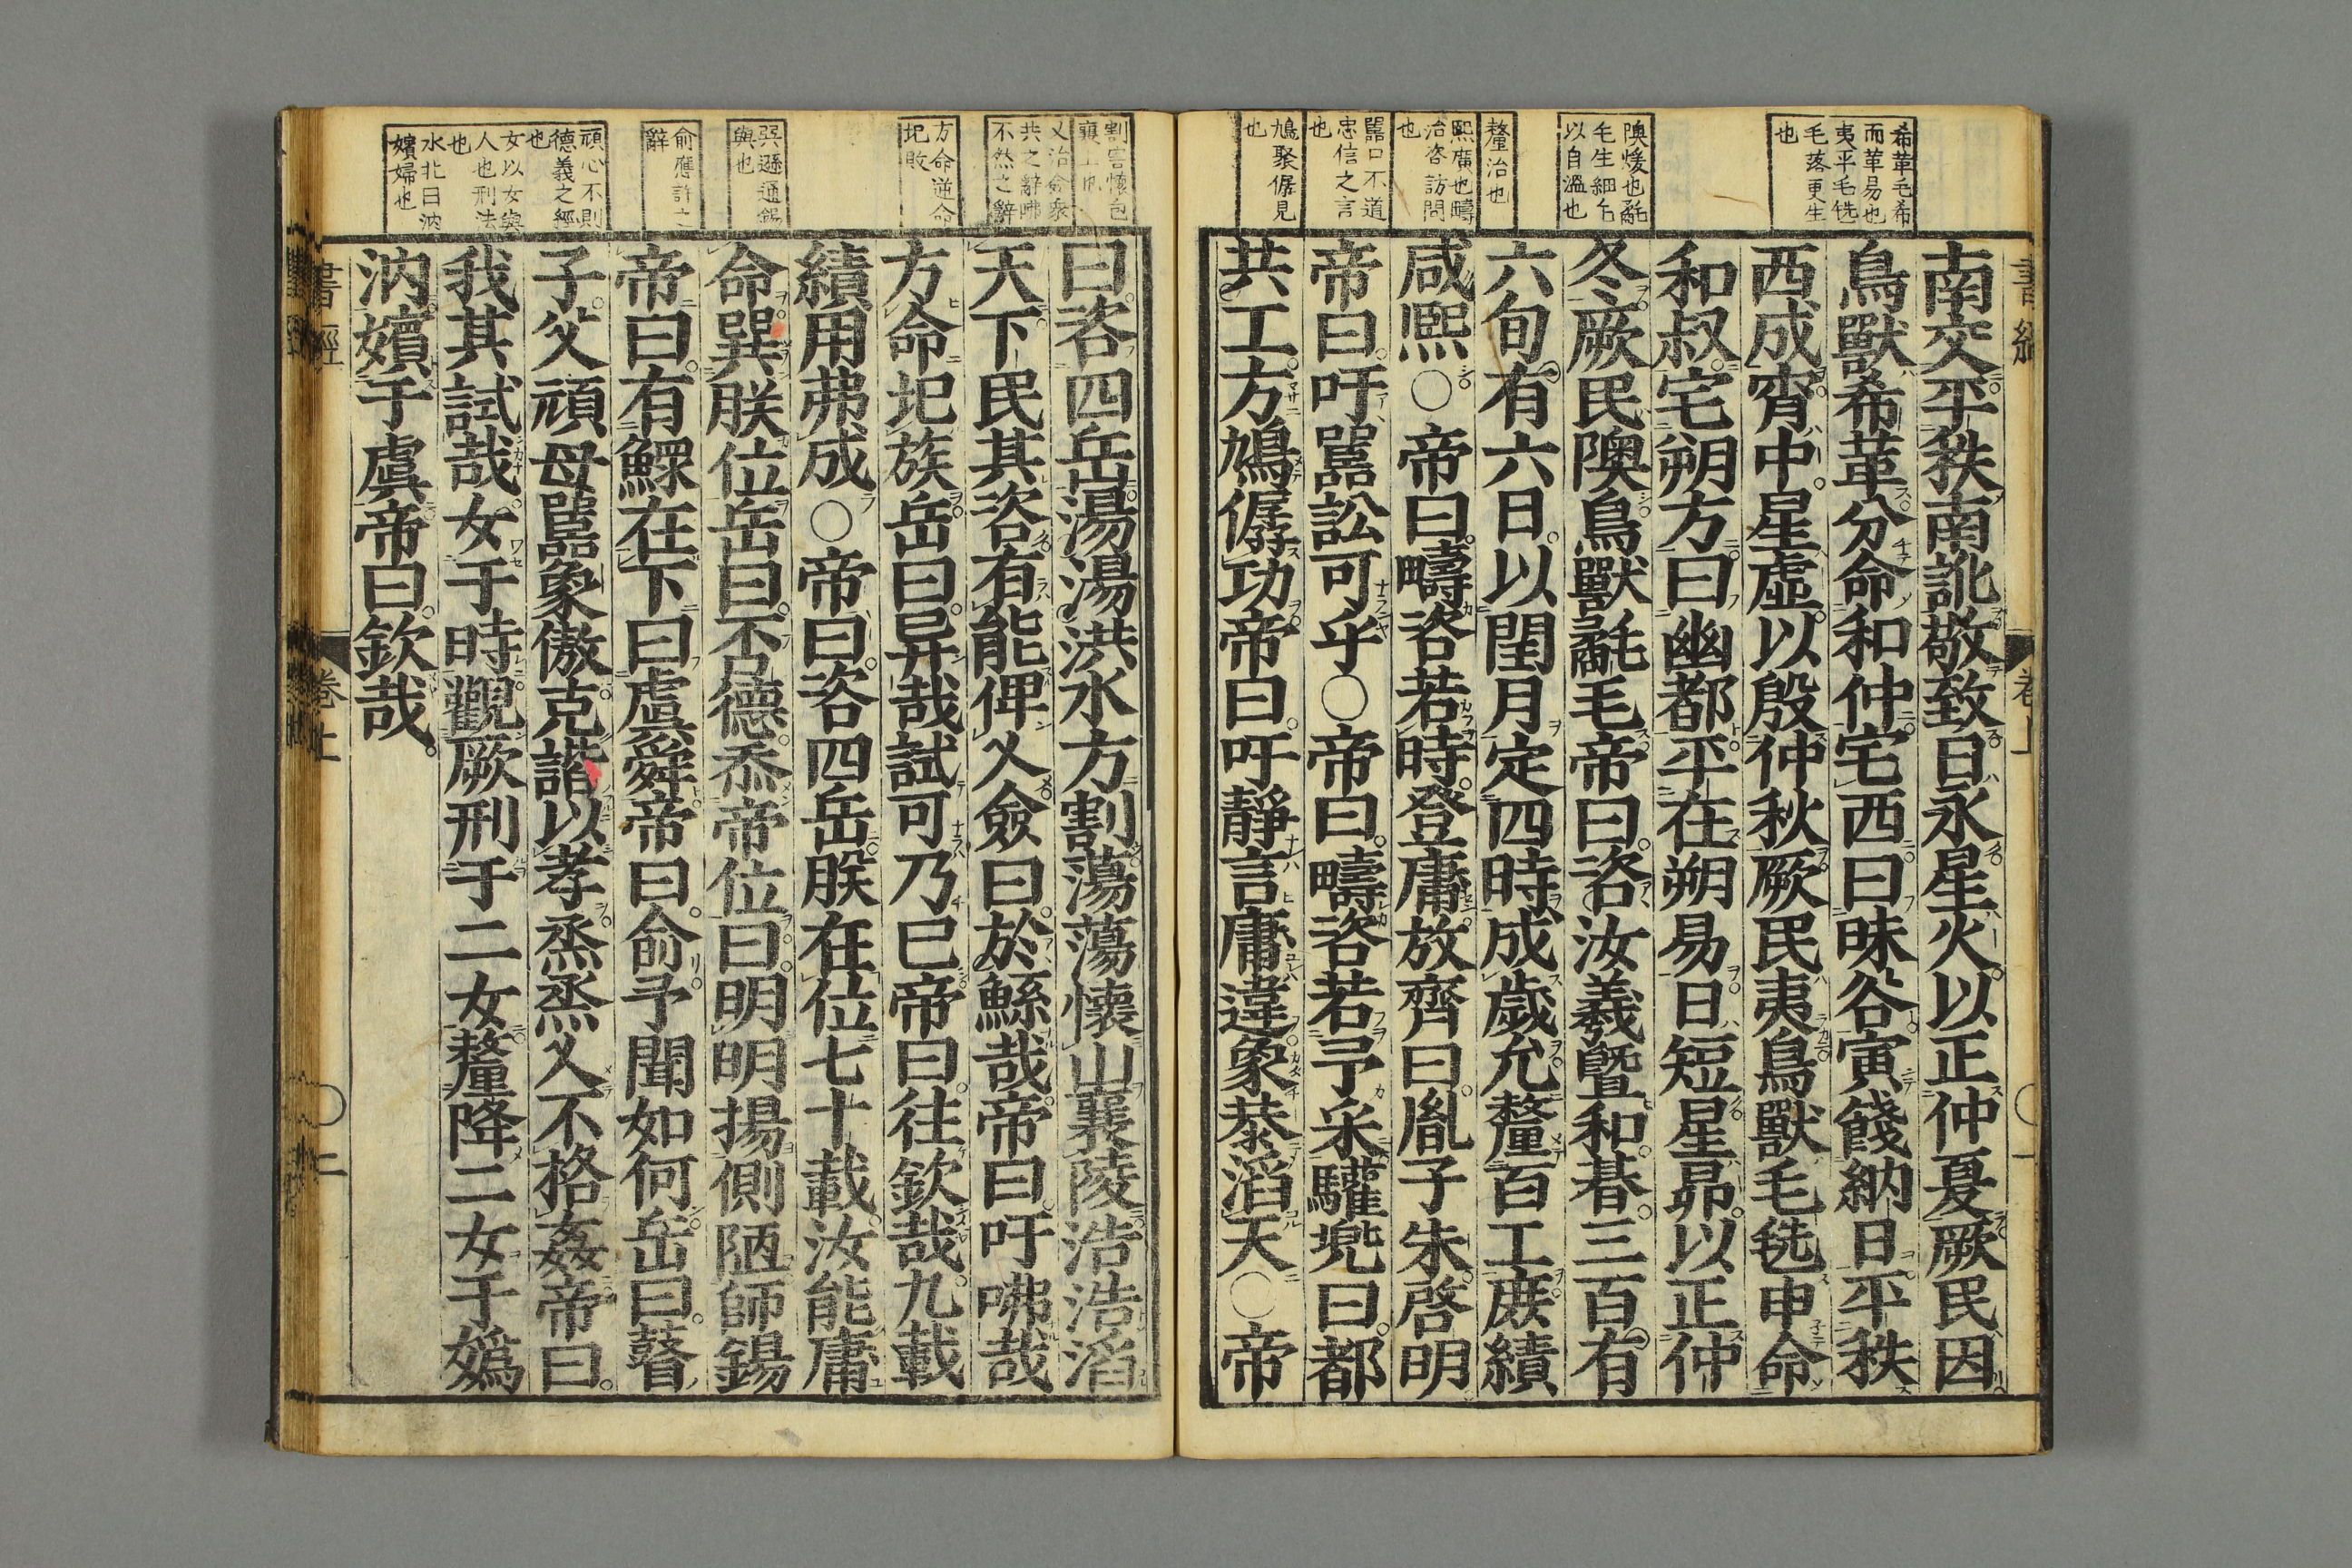 希革毛希
而革易也
夷平毛毨
毛落更生
也
隩煖也氄
毛生細毛
以自溫也
釐治也
熙廣也疇
治咨訪問
也
嚚口不道
忠信之言
也
鳩聚僝見
也
南交平秩南訛敬致日永星火以正仲夏厥民因
鳥獸希革分命和仲宅西曰昧谷寅餞納日平秩
西成宵中星虛以殷仲秋厥民夷鳥獸毛毨申命
和叔宅朔方曰幽都平在朔易日短星昴以正仲
冬厥民隩鳥獸氄毛帝曰咨汝羲曁和朞三百有
六旬有六日以閏月定四時成歲允釐百工庶績
咸熙○帝曰疇咨若時登庸放齊曰胤子朱啓明
帝曰吁嚚訟可乎○帝曰疇咨若予采驩兜曰都
共工方鳩僝功帝曰吁靜言庸違象恭滔天○帝
割害懷包
襄上也
乂治僉衆
共之辭咈
不然之辭
方命逆命
圮敗
巽遜通錫
與也
俞應許之
辭
頑心不則
德義之經
也
女以女與
人也刑法
也
水北曰汭
嬪婦也
曰咨四岳湯湯洪水方割蕩蕩懷山襄陵浩浩滔
天下民其咨有能俾乂僉曰於鯀哉帝曰吁咈哉
方命圮族岳曰异哉試可乃已帝曰往欽哉九載
績用弗成○帝曰咨四岳朕在位七十載汝能庸
命巽朕位岳曰否德忝帝位曰明明揚側陋師錫
帝曰有鰥在下曰虞舜帝曰俞予聞如何岳曰瞽
子父頑母嚚象傲克諧以孝烝烝乂不格姦帝曰
我其試哉女于時觀厥刑于二女釐降二女于嬀
汭嬪于虞帝曰欽哉
書經 卷上 ○二